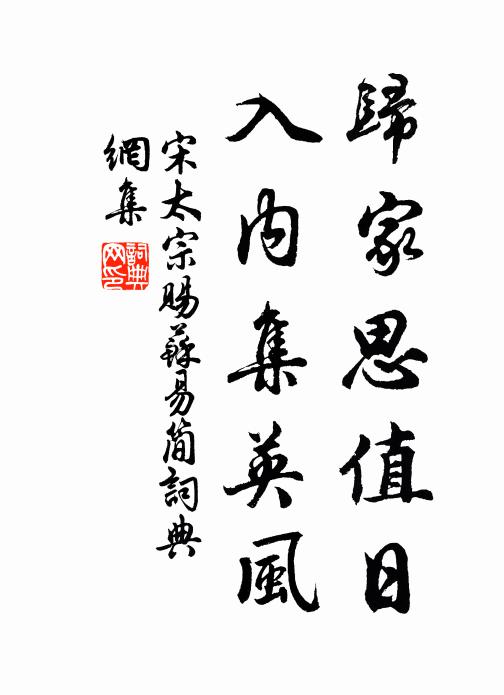 歸家思值日
入內集英風
宋太宗賜蘇易簡詞典
網集
詞典網印